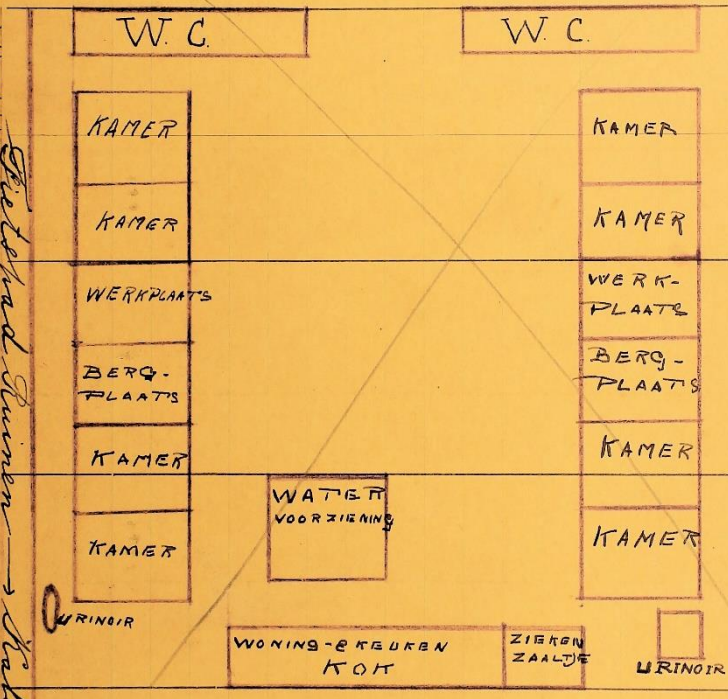 W. C.
W. C.
KAMER
KAMER
WERKPLAATS
BERG-
PLAATS
KAMER
KAMER
KAMER
KAMER
WERK-
PLAATS
BERG-
PLAATS
KAMER
KAMER
WATER
VOORZIENING
URINOIR
WONING-& KEUKEN
KOK
ZIEKEN
ZAALTJE
URINOIR
Fietspad Ruinen →